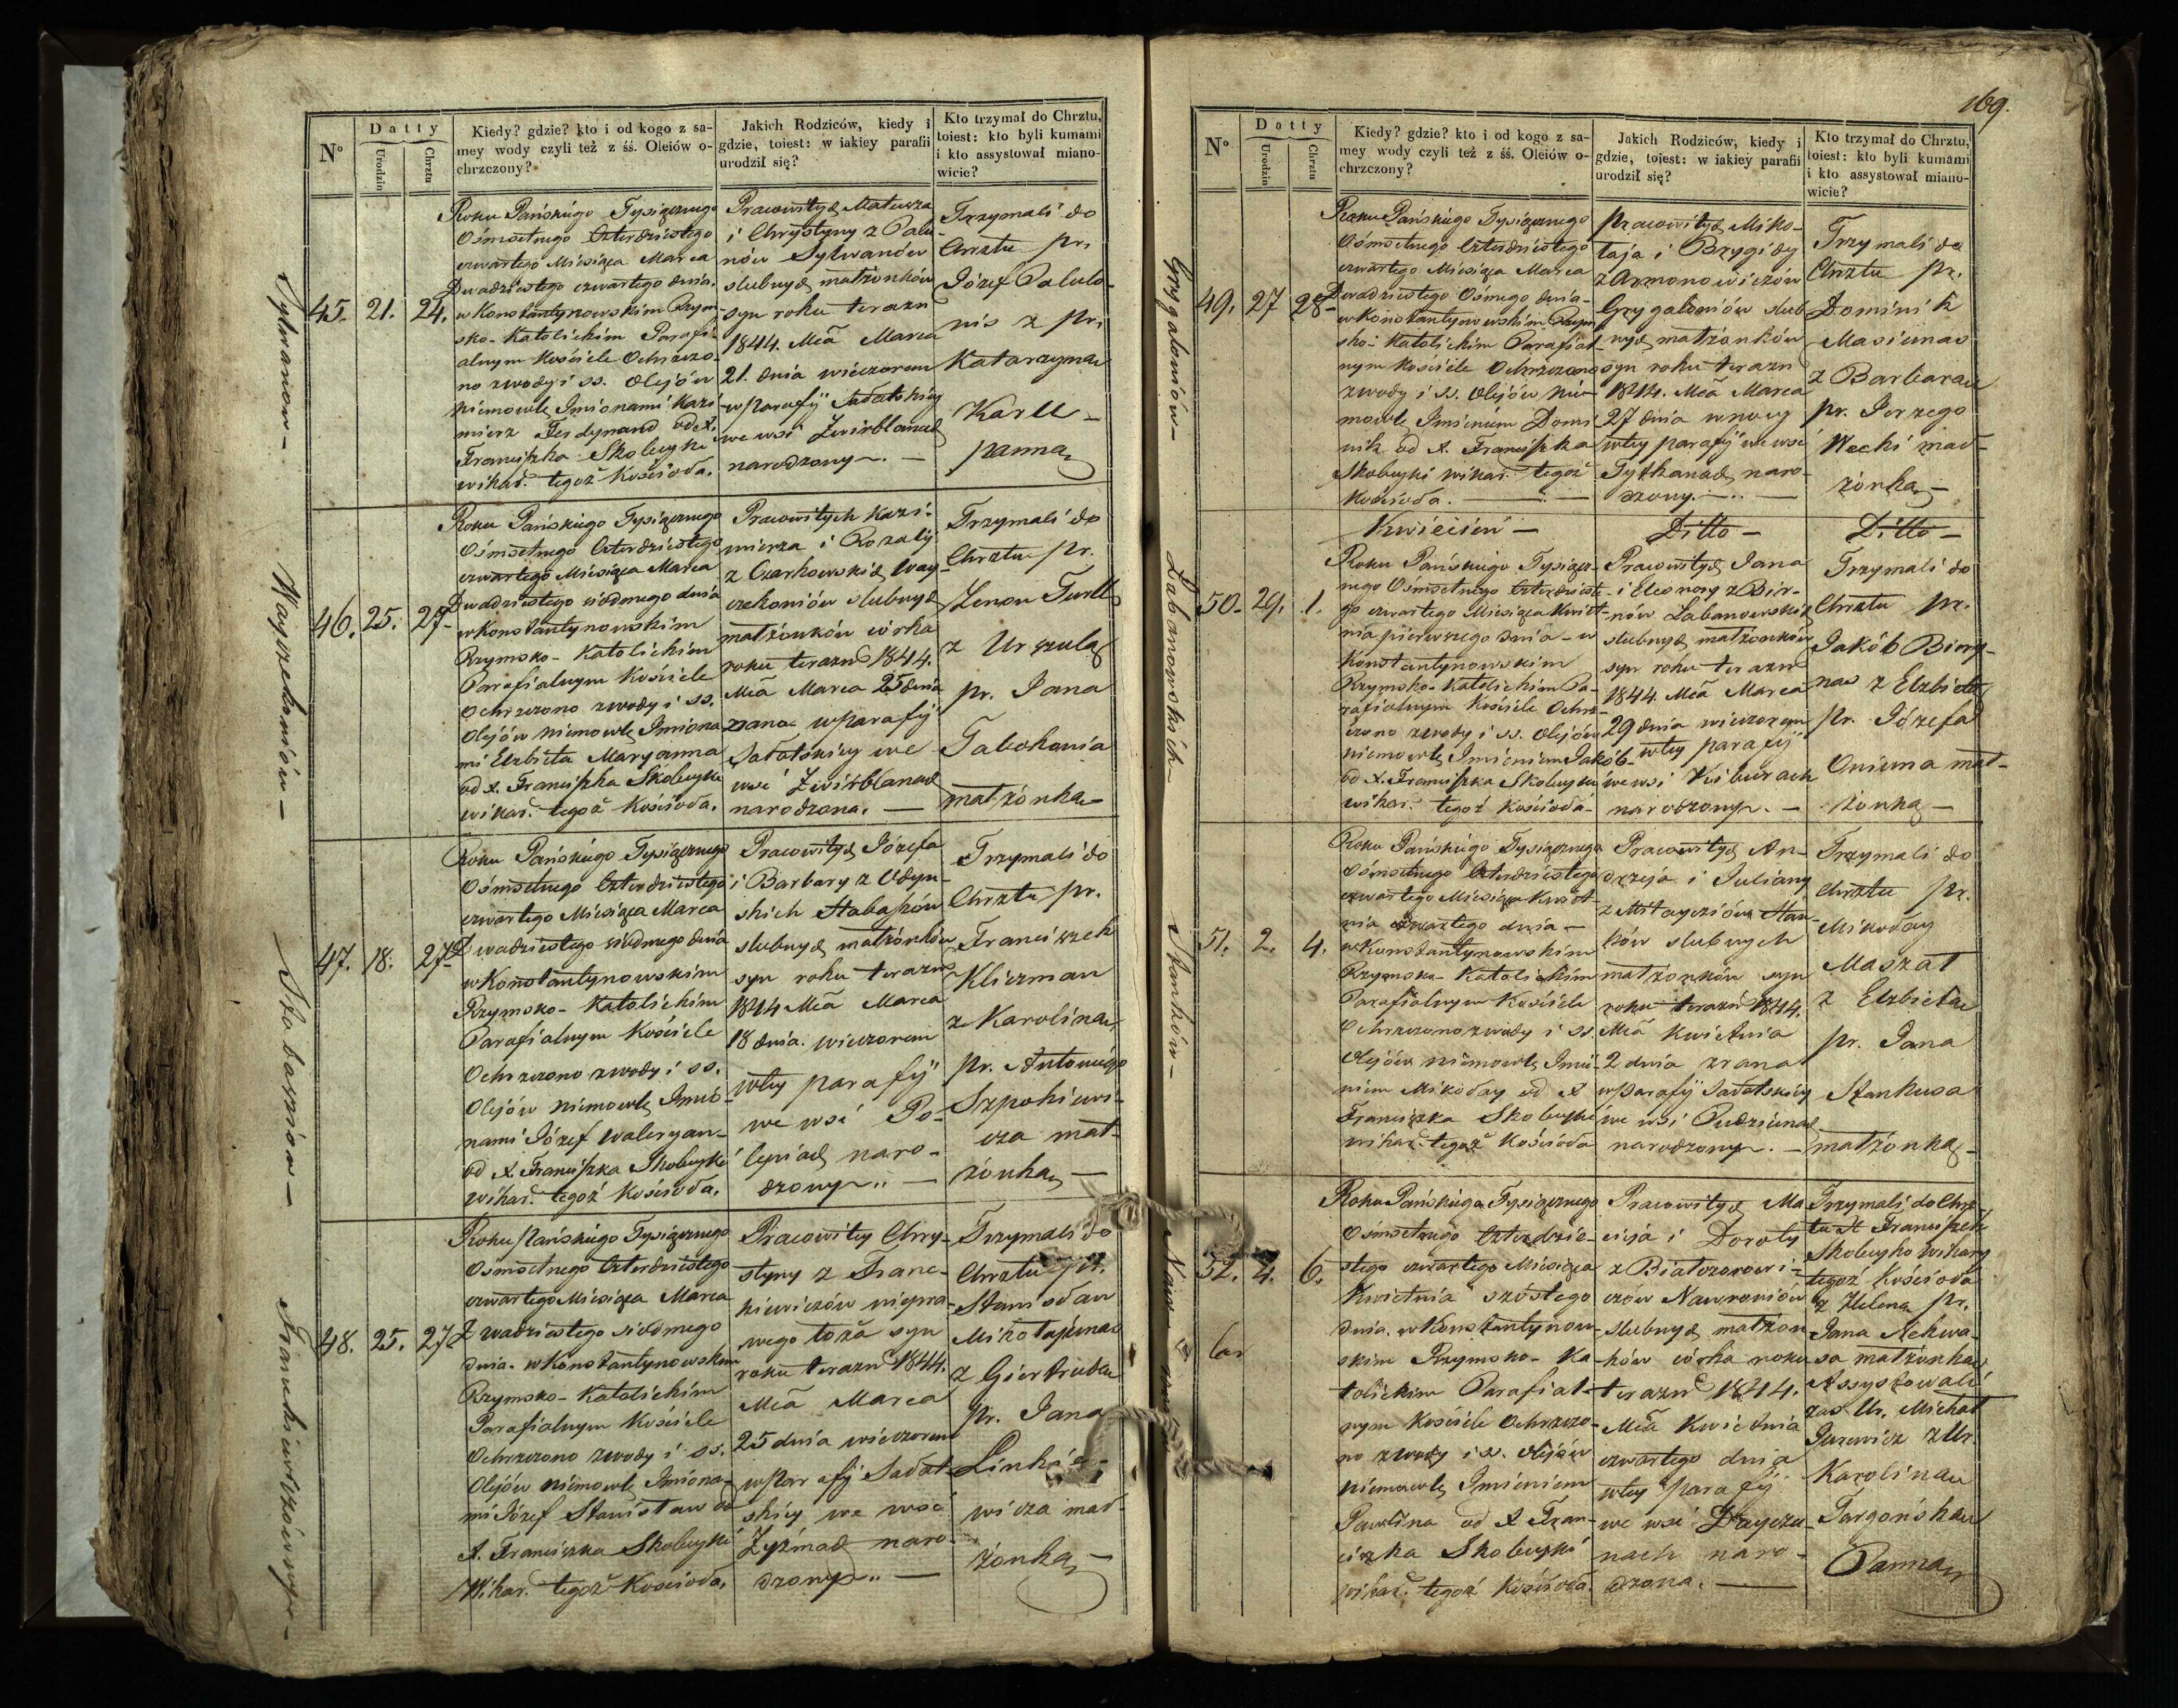 N°
Datty
Urodzin
Chrztu
Kiedy? gdzie? kto i od kogo z sa-
mey wody czyli też z śś. Oleiów o-
chrzczony?
Jakich Rodziców, kiedy i
gdzie, toiest: w iakiey parafii
urodził się?
Kto trzymał do Chrztu,
toiest: kto byli kumami
i kto assystował miano-
wicie?
45. 21. 24.
Roku Pańskiego Tysiącznego
Ośmsetnego Czterdziestego
czwartego Miesiąca Marca
Dwadziestego czwartego dnia
w Konstantynowskim Rzym-
sko-Katolickim Parafi-
alnym Kościele Ochrzczo-
no zwody i ss. Olejów
niemowle Imionami Kazi-
mierz Ferdynand od X.
Franciszka Skobeyki
wikar. tegoż Kościoła.
Pracowitych Mateusza
i Chrystyny z Palu-
nów Sylwanów
slubnych małżonków
syn roku terazn
1844. Mca Marca
21. dnia wieczorem
w parafij Sałatskiey
we wsi Zwirblanach
narodzony. —
Trzymali do
Chrztu pr.
Józef Palulo-
nis z pr.
Katarzyną
Karll-
panną
46. 25. 27
Roku Pańskiego Tysiącznego
Ośmsetnego Czterdziestego
czwartego Miesiąca Marca
Dwadziestego siódmego dnia
w Konstantynowskim
Rzymsko-Katolickim
Parafialnym Kościele
Ochrzczono zwody i ss.
Olejów niemowle Imiona-
mi Elzbieta Maryanna
od X. Franciszka Skobeyki
wikar. tegoż Kościoła.
Pracowitych Kazi-
mierza i Rozalij
z Czarkowskich Way-
czekoniów slubnych
małżonków córka
roku terazn 1844.
Mca Marca 25 dnia
zrana w parafij
Sałatskiey we
wsi Zwirblanach
narodzona. —
Trzymali do
Chrztu pr.
Zenon Turll
z Urszulą
pr. Jana
Tabokonia
małżonką
47. 18. 27
Roku Pańskiego Tysiącznego
Ośmsetnego Czterdziestego
czwartego Miesiąca Marca
Dwadziestego siódmego dnia
w Konstantynowskim
Rzymsko-Katolickim
Parafialnym Kościele
Ochrzczono zwody i ss.
Olejów niemowle Imio-
nami Józef Waleryan
od X. Franciszka Skobeyki
wikar. tegoż Kościoła.
Pracowitych Józefa
i Barbary z Udyn-
skich Stabaszów
slubnych małżonków
syn roku terazn
1844 Mca Marca
18 dnia wieczorem
w tey parafij
we wsi Po-
lepiach naro-
dzony. —
Trzymali do
Chrztu pr.
Franciszek
Kliczman
z Karoliną
pr. Antoniego
Szpokiewi-
cza mał-
żonką —
48. 25. 27
Roku Pańskiego Tysiącznego
Ośmsetnego Czterdziestego
czwartego Miesiąca Marca
Dwadziestego siódmego
dnia w Konstantynowskim
Rzymsko-Katolickim
Parafialnym Kościele
Ochrzczono zwody i ss.
Olejów niemowle Imiona-
mi Józef Stanisław od
X. Franciszka Skobeyki
Wikar. tegoż Kościoła.
Pracowitey Chry-
styny z Franc-
kiewiczów niepra-
wego łoża syn
roku terazn 1844.
Mca Marca
25 dnia wieczorem
w parafij Sałat-
skiey we wsi
Żyżmach naro-
dzony. —
Trzymali do
Chrztu pr.
Stanisław
Mikołajunas
z Giertrudą
pr. Jana
Linkie-
wicza mał-
żonką —
Sylwanów—
Wayczekoniów—
Stabaszów—
Franckiewiczówny—
169.
N°
Datty
Urodzin
Chrztu
Kiedy? gdzie? kto i od kogo z sa-
mey wody czyli też z śś. Oleiów o-
chrzczony?
Jakich Rodziców, kiedy i
gdzie, toiest: w iakiey parafii
urodził się?
Kto trzymał do Chrztu,
toiest: kto byli kumami
i kto assystował miano-
wicie?
49. 27 28
Roku Pańskiego Tysiącznego
Ośmsetnego Czterdziestego
czwartego Miesiąca Marca
Dwadziestego Ośmego dnia
w Konstantynowskim Rzym-
sko-Katolickim Parafial-
nym Kościele Ochrzczono
zwody i ss. Olejów nie-
mowle Imieniem Domi-
nik od X. Franciszka
Skobeyki wikar. tegoż
Kościoła. —
Pracowitych Miko-
łaja i Brygidy
z Armonowiczów
Grygaloniów slub-
nych małżonków
syn roku terazn
1844. Mca Marca
27 dnia w nocy
w tey parafij we wsi
Tytkanach naro-
dzony. —
Trzymali do
Chrztu pr.
Dominik
Masiunas
z Barbarą
pr. Jerzego
Weeki mał-
żonką —
Kwiecień —
Ditto —
Ditto —
50. 29. 1.
Roku Pańskiego Tysiącz-
nego Ośmsetnego Czterdzieste-
go czwartego Miesiąca Kwiet-
nia pierwszego dnia w
Konstantynowskim
Rzymsko-Katolickim Pa-
rafialnym Kościele Ochrz-
czono zwody i ss. Olejów
niemowle Imieniem Jakób
od X. Franciszka Skobeyki
wikar. tegoż Kościoła
Pracowitych Jana
i Eleonory z Bir-
nów Łabanowskich
slubnych małżonków
syn roku terazn
1844. Mca Marca
29 dnia wieczorem
w tey parafij
we wsi Kiburach
narodzony. —
Trzymali do
Chrztu pr.
Jakób Biery-
nas z Elzbietą
pr. Józefa
Oniuna mał-
żonką —
51. 2. 4.
Roku Pańskiego Tysiącznego
Ośmsetnego Czterdziestego
czwartego Miesiąca Kwiet-
nia czwartego dnia —
w Konstantynowskim
Rzymsko-Katolickim
Parafialnym Kościele
Ochrzczono zwody i ss.
Olejów niemowle Imie-
niem Mikołay od X
Franciszka Skobeyki
wikar. tegoż Kościoła
Pracowitych An-
drzeja i Juliany
z Mstayciów Stan-
ków slubnych
małżonków syn
roku terazn 1844.
Mca Kwietnia
2 dnia zrana
w parafij Sałatskiey
we wsi Pudziunach
narodzony. —
Trzymali do
Chrztu pr.
Mikołay
Maszat
z Elzbietą
pr. Jana
Stankusa
małżonką
52. 4. 6.
Roku Pańskiego Tysiącznego
Ośmsetnego Czterdzie-
stego czwartego Miesiąca
Kwietnia szóstego
dnia w Konstantynow-
skim Rzymsko-Ka-
tolickim Parafial-
nym Kościele Ochrzczo-
no zwody i ss. Olejów
niemowle Imieniem
Pawlina od X Fran-
ciszka Skobeyki
wikar. tegoż Kościoła.
Pracowitych Ma-
cieja i Doroty
z Białozorowi-
czów Nawroniów
slubnych małżon-
ków córka roku
terazn 1844.
Mca Kwietnia
czwartego dnia
w tey parafij
we wsi Drayczu-
nach naro-
dzona. —
Trzymali do Chrz-
tu X Franciszek
Skobeyko wikary
tegoż Kościoła
z Heleną pr.
Jana Nekwa-
sa małżonką
Assystowali
zaś Ur. Michał
Jurewicz z Ur.
Karoliną
Targońską
Panną
Grygaloniów—
Łabanowskich—
Stanków—